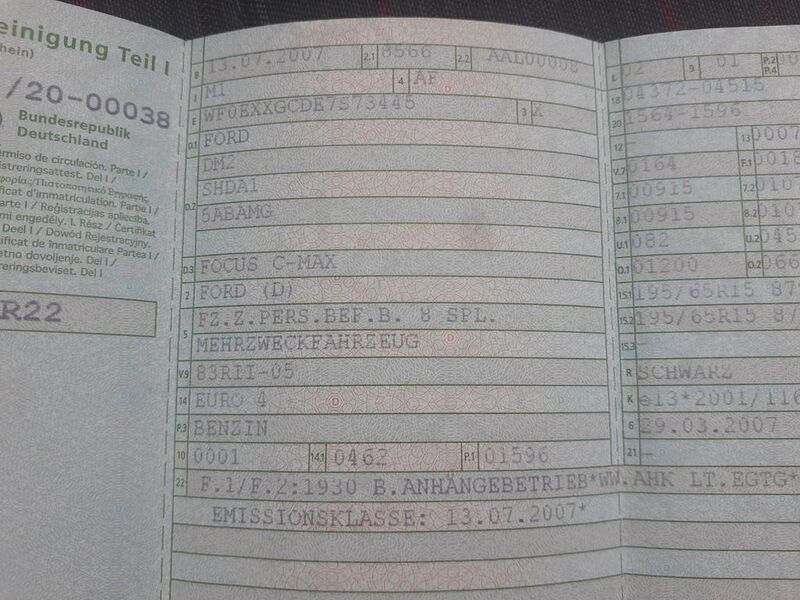 einigung Teil I
hein)
/20-00038
Bundesrepublik
Deutschland
ermiso de circulación. Parte I /
istreringsattest. Del I /
icat d'immatriculation. Partie I /
arte I / Reģistrācijas apliecība.
mi engedély. I. Rész / Ċertifikat
Deel I / Dowód Rejestracyjny.
ificat de înmatriculare Partea I /
etno dovoljenje. Del I /
reringsbeviset. Del I
R22
B 13.07.2007 2.1 8566 2.2 AAL00008
J M1 4 AF
E WF0EXXGCDE7S73445 3 X
D.1 FORD
DM2
D.2 SHDA1
5ABAMG
D.3 FOCUS C-MAX
2 FORD (D)
5 FZ.Z.PERS.BEF.B. 8 SPL.
MEHRZWECKFAHRZEUG
V.9 83RII-05
14 EURO 4
P.3 BENZIN
10 0001 14.1 0462 P.1 01596
22 F.1/F.2:1930 B.ANHÄNGEBETRIEB*WW.AHK LT.EGTG*
EMISSIONSKLASSE: 13.07.2007*
L 02 9 01 P.2 P.4
18 04372-04515
20 1564-1596
12 - 13 0007
V.7 0164 F.1 0018
7.1 00915 7.2 010
8.1 00915 8.2 010
U.1 082 U.2 045
O.1 01200 O.2 066
15.1 195/65R15 87
15.2 195/65R15 87
15.3 -
R SCHWARZ
K e13*2001/116
6 29.03.2007
21 -